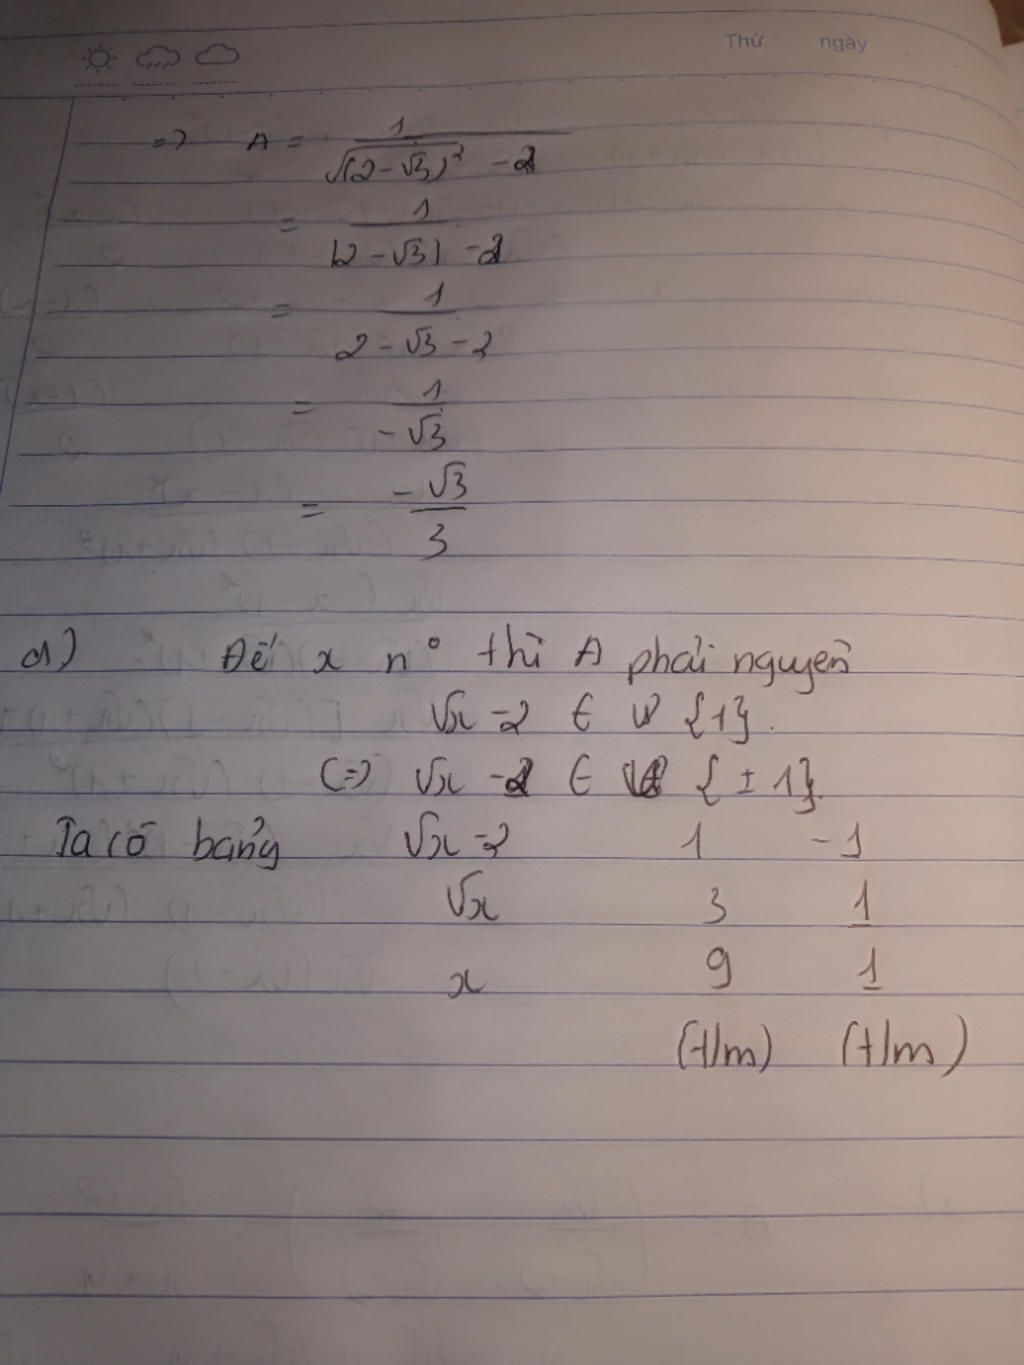 Thứ ngày
=> A = 1 / √(2 - √3)² - 2
= 1 / |2 - √3| - 2
= 1 / 2 - √3 - 2
= 1 / -√3
= -√3 / 3
d) Để x n° thì A phải nguyên
√x - 2 ∈ Ư {1}.
(=) √x - 2 ∈ {± 1}.
Ta có bảng √x - 2 1 -1
√x 3 1
x 9 1
(t/m) (t/m)